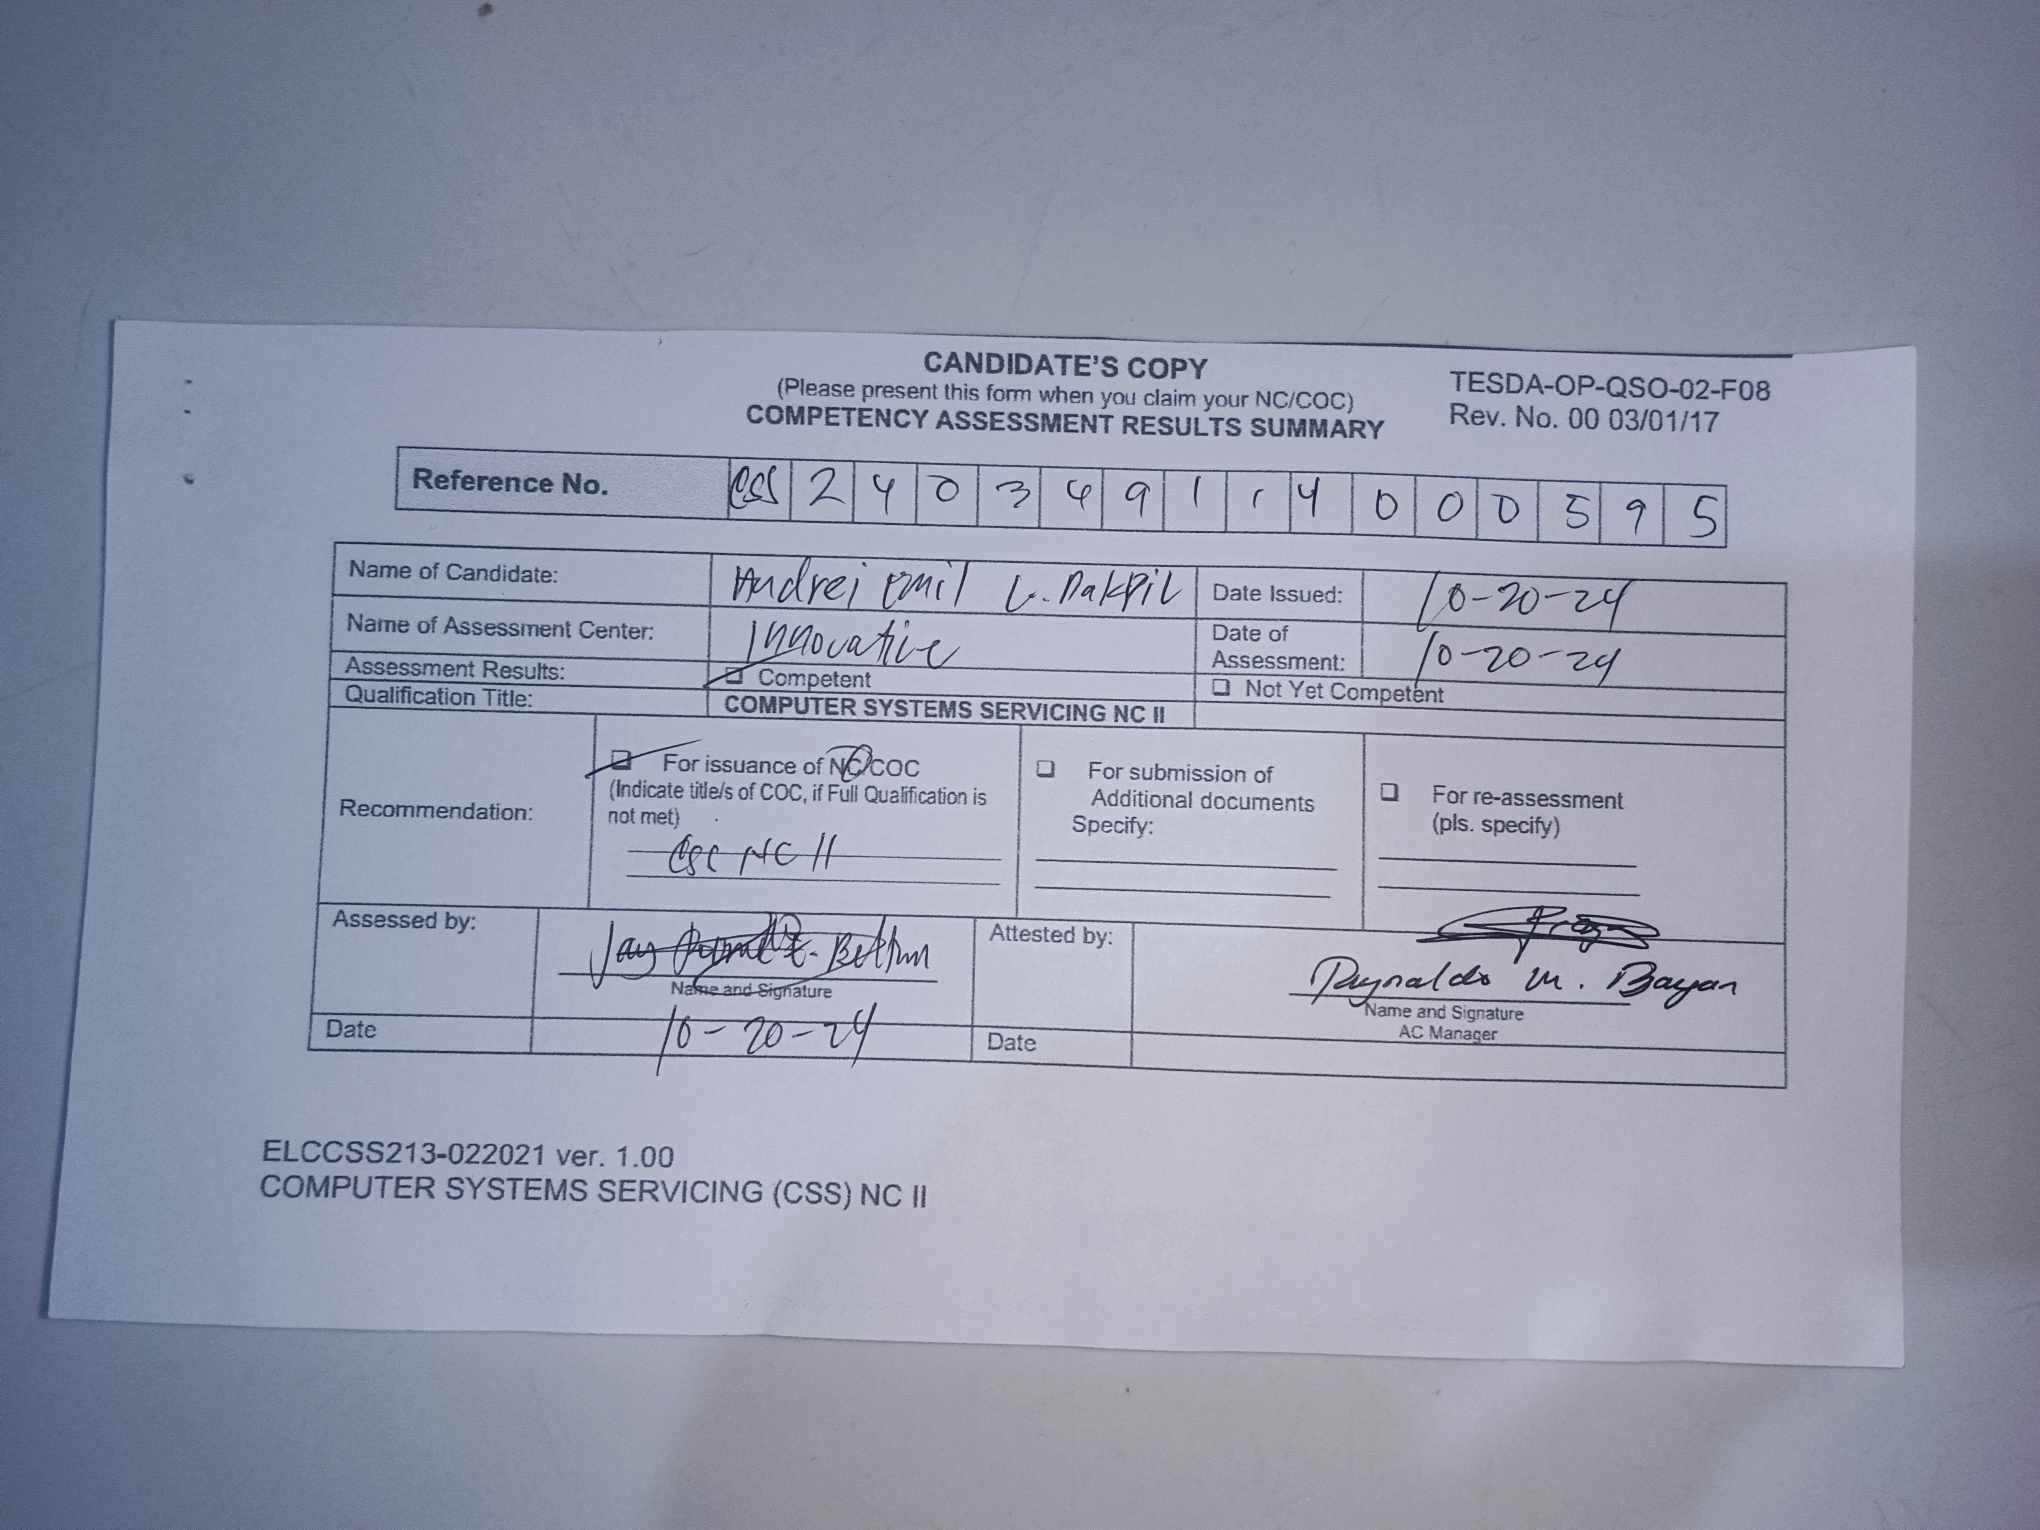 CANDIDATE'S COPY
(Please present this form when you claim your NC/COC)
COMPETENCY ASSESSMENT RESULTS SUMMARY
TESDA-OP-QSO-02-F08
Rev. No. 00 03/01/17
Reference No. CSS 2 4 0 3 4 9 1 1 4 0 0 0 5 9 5
Name of Candidate: Andrei Emil L. Dakpil Date Issued: 10-20-24
Name of Assessment Center: Innovative Date of Assessment: 10-20-24
Assessment Results: Competent Not Yet Competent
Qualification Title: COMPUTER SYSTEMS SERVICING NC II
Recommendation:
For issuance of NC/COC
(Indicate title/s of COC, if Full Qualification is
not met)
CSC NC II
For submission of
Additional documents
Specify:
For re-assessment
(pls. specify)
Assessed by: Jay
Name and Signature
Attested by: Reynaldo M. Bayan
Name and Signature
AC Manager
Date 10-20-24 Date
ELCCSS213-022021 ver. 1.00
COMPUTER SYSTEMS SERVICING (CSS) NC II